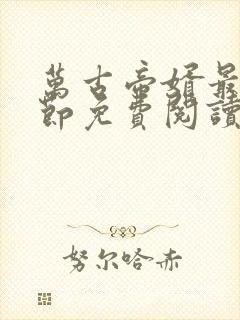 萬古帝婿最
節免費閱讀
努尔哈赤